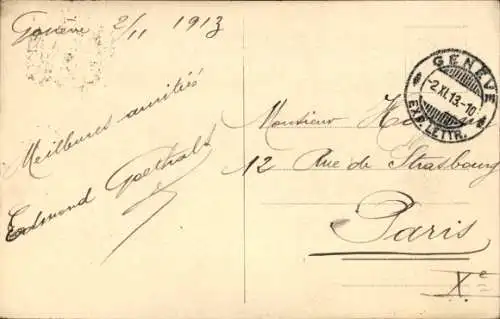 Genève 2/11 1913
Meilleures amitiés
Edmond Goethals
GENÈVE
-2.XI.13.-10
EXP. LETTR.
Monsieur
12 Rue de Strasbourg
Paris
Xe